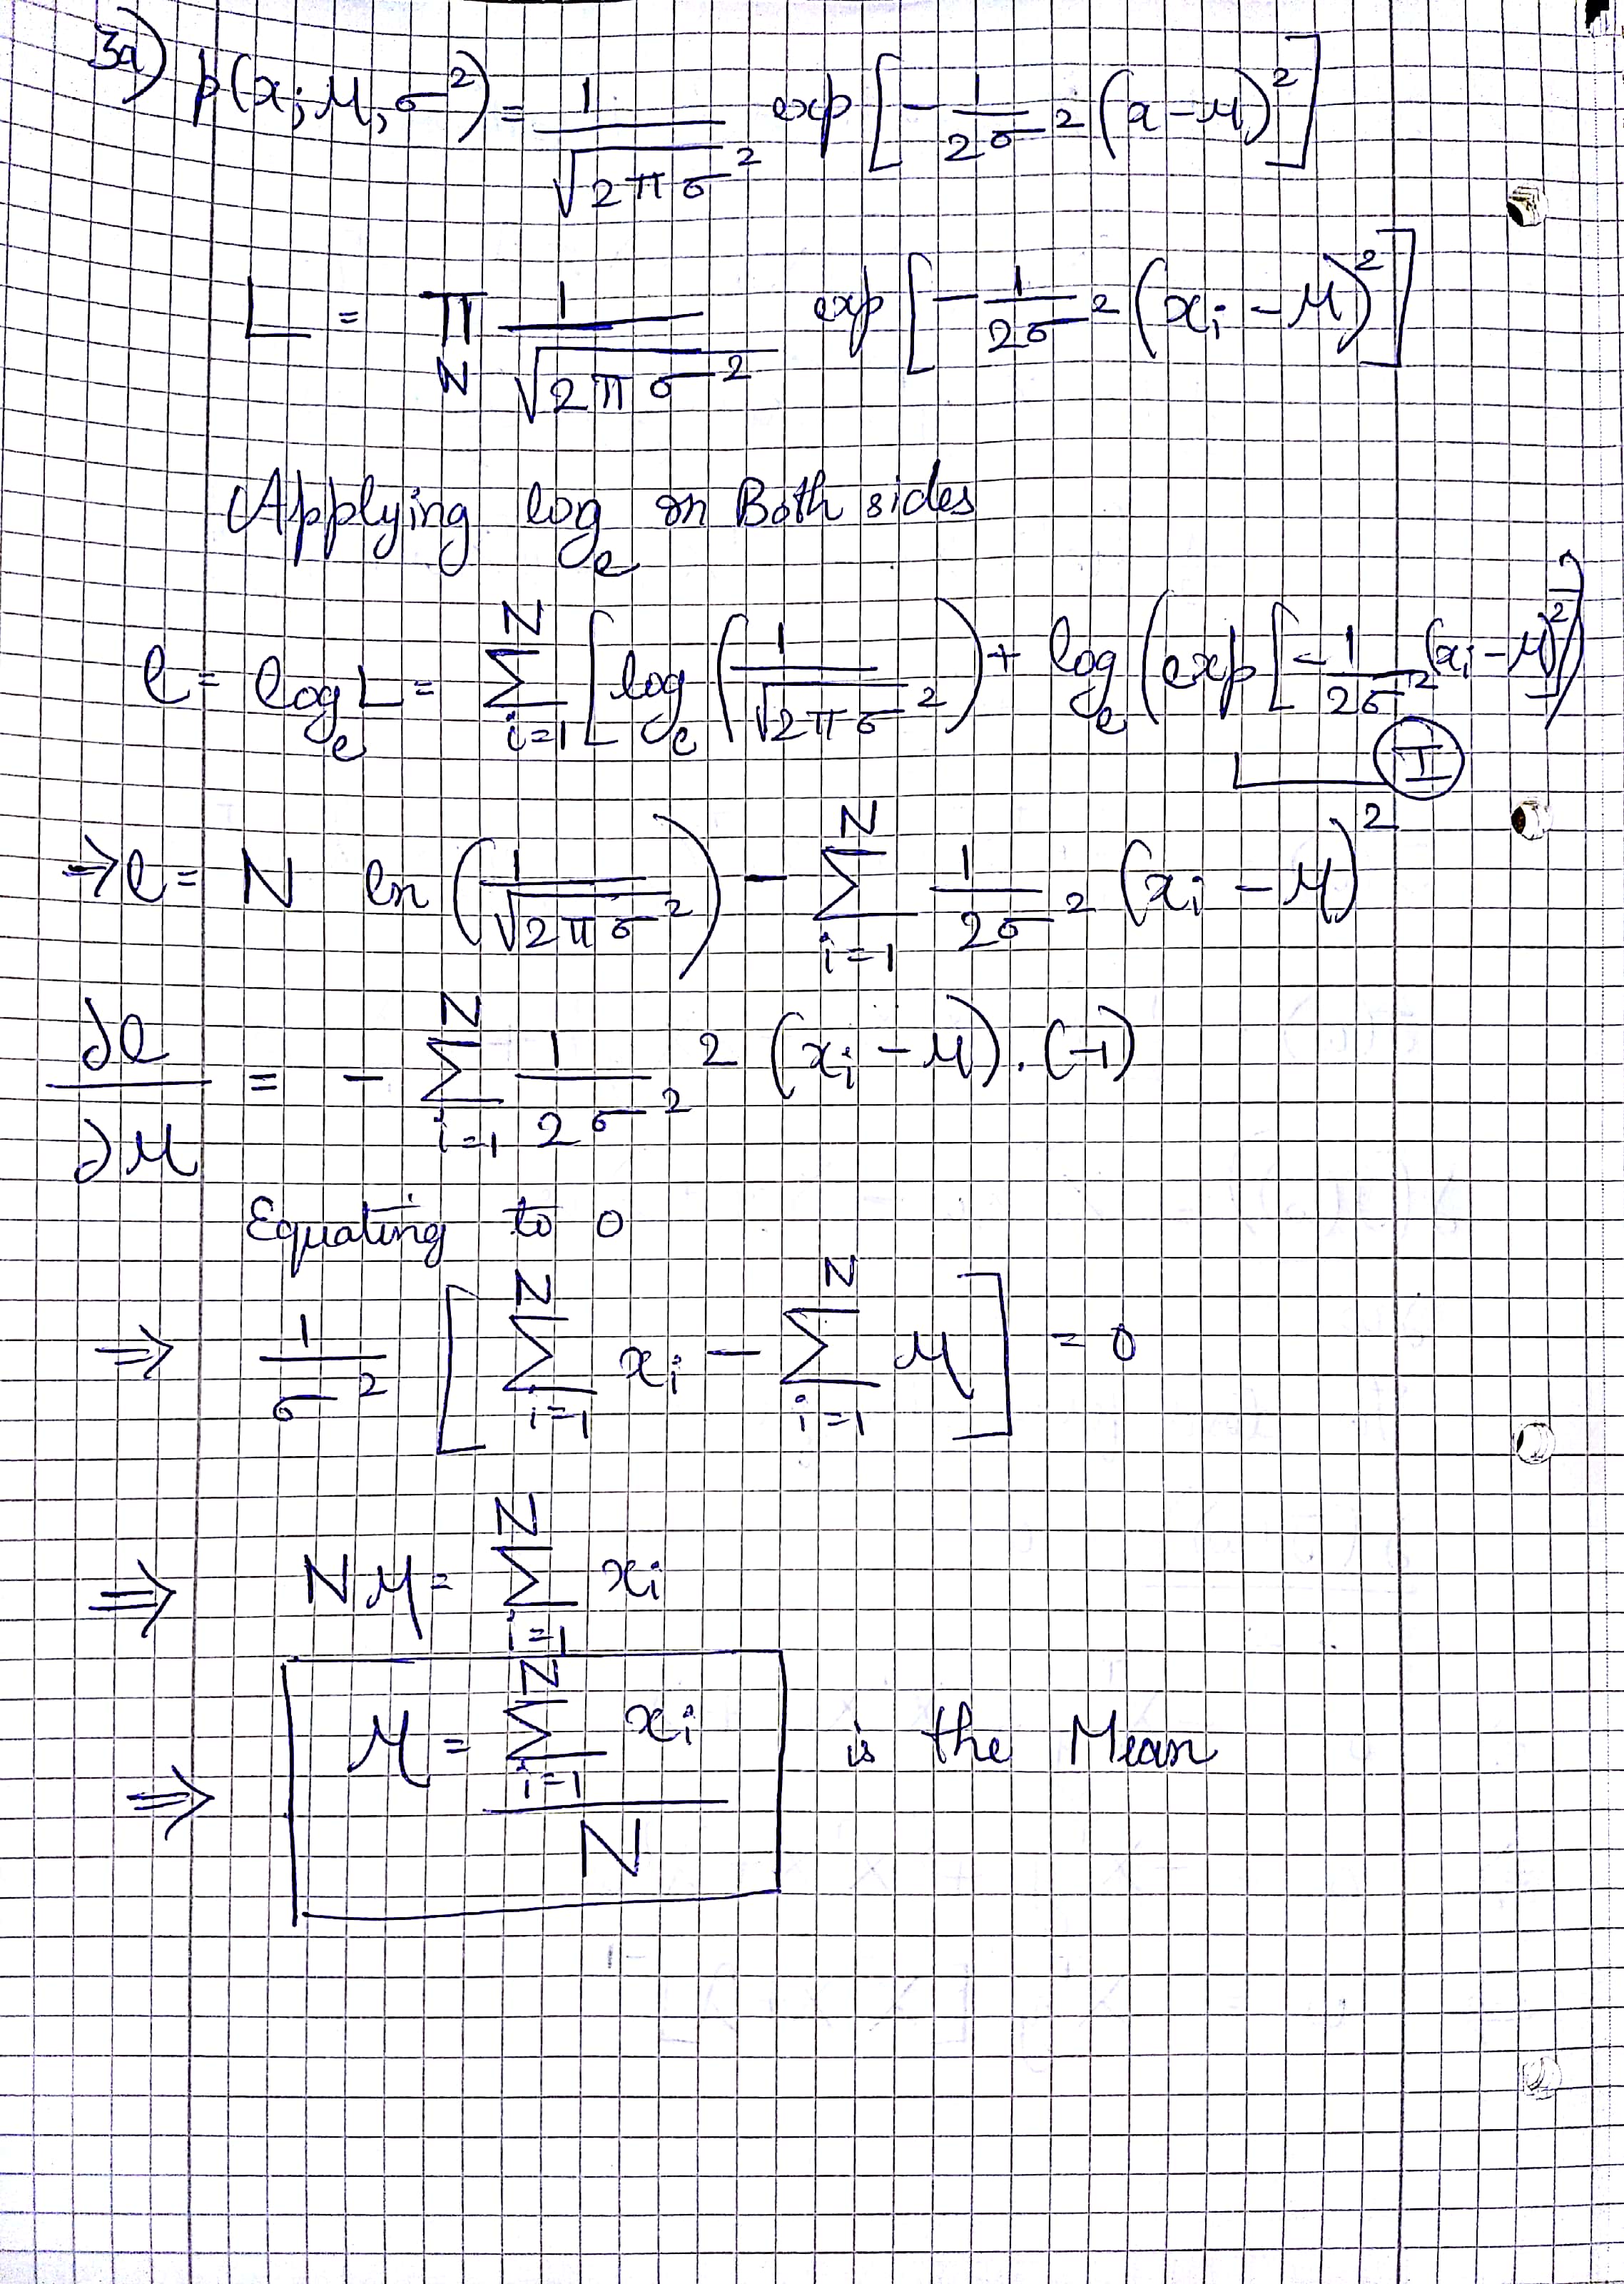 3a) p(x; μ, σ²) = 1/√(2πσ²) exp[-1/(2σ²) (x-μ)²]
L = Π_N 1/√(2πσ²) exp[-1/(2σ²) (x_i - μ)²]
Applying log_e on Both sides
l = log_e L = Σ_{i=1}^{N} [log_e (1/√(2πσ²)) + log_e (exp[-1/(2σ²) (x_i - μ)²])
I
⇒ l = N ln (1/√(2πσ²)) - Σ_{i=1}^{N} 1/(2σ²) (x_i - μ)²
∂l/∂μ = - Σ_{i=1}^{N} 1/(2σ²) 2 (x_i - μ) . (-1)
Equating to 0
⇒ 1/σ² [Σ_{i=1}^{N} x_i - Σ_{i=1}^{N} μ] = 0
⇒ Nμ = Σ_{i=1}^{N} x_i
⇒ μ = Σ_{i=1}^{N} x_i / N is the Mean